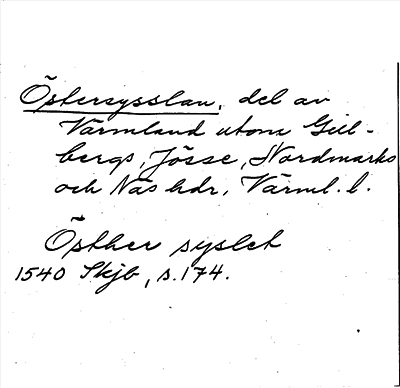 Östersysslan, del av
Värmland utom Gill-
bergs, Jösse, Nordmarks
och Näs hdr, Värml. l.
Östher syslet
1540 Skjb, s. 174.